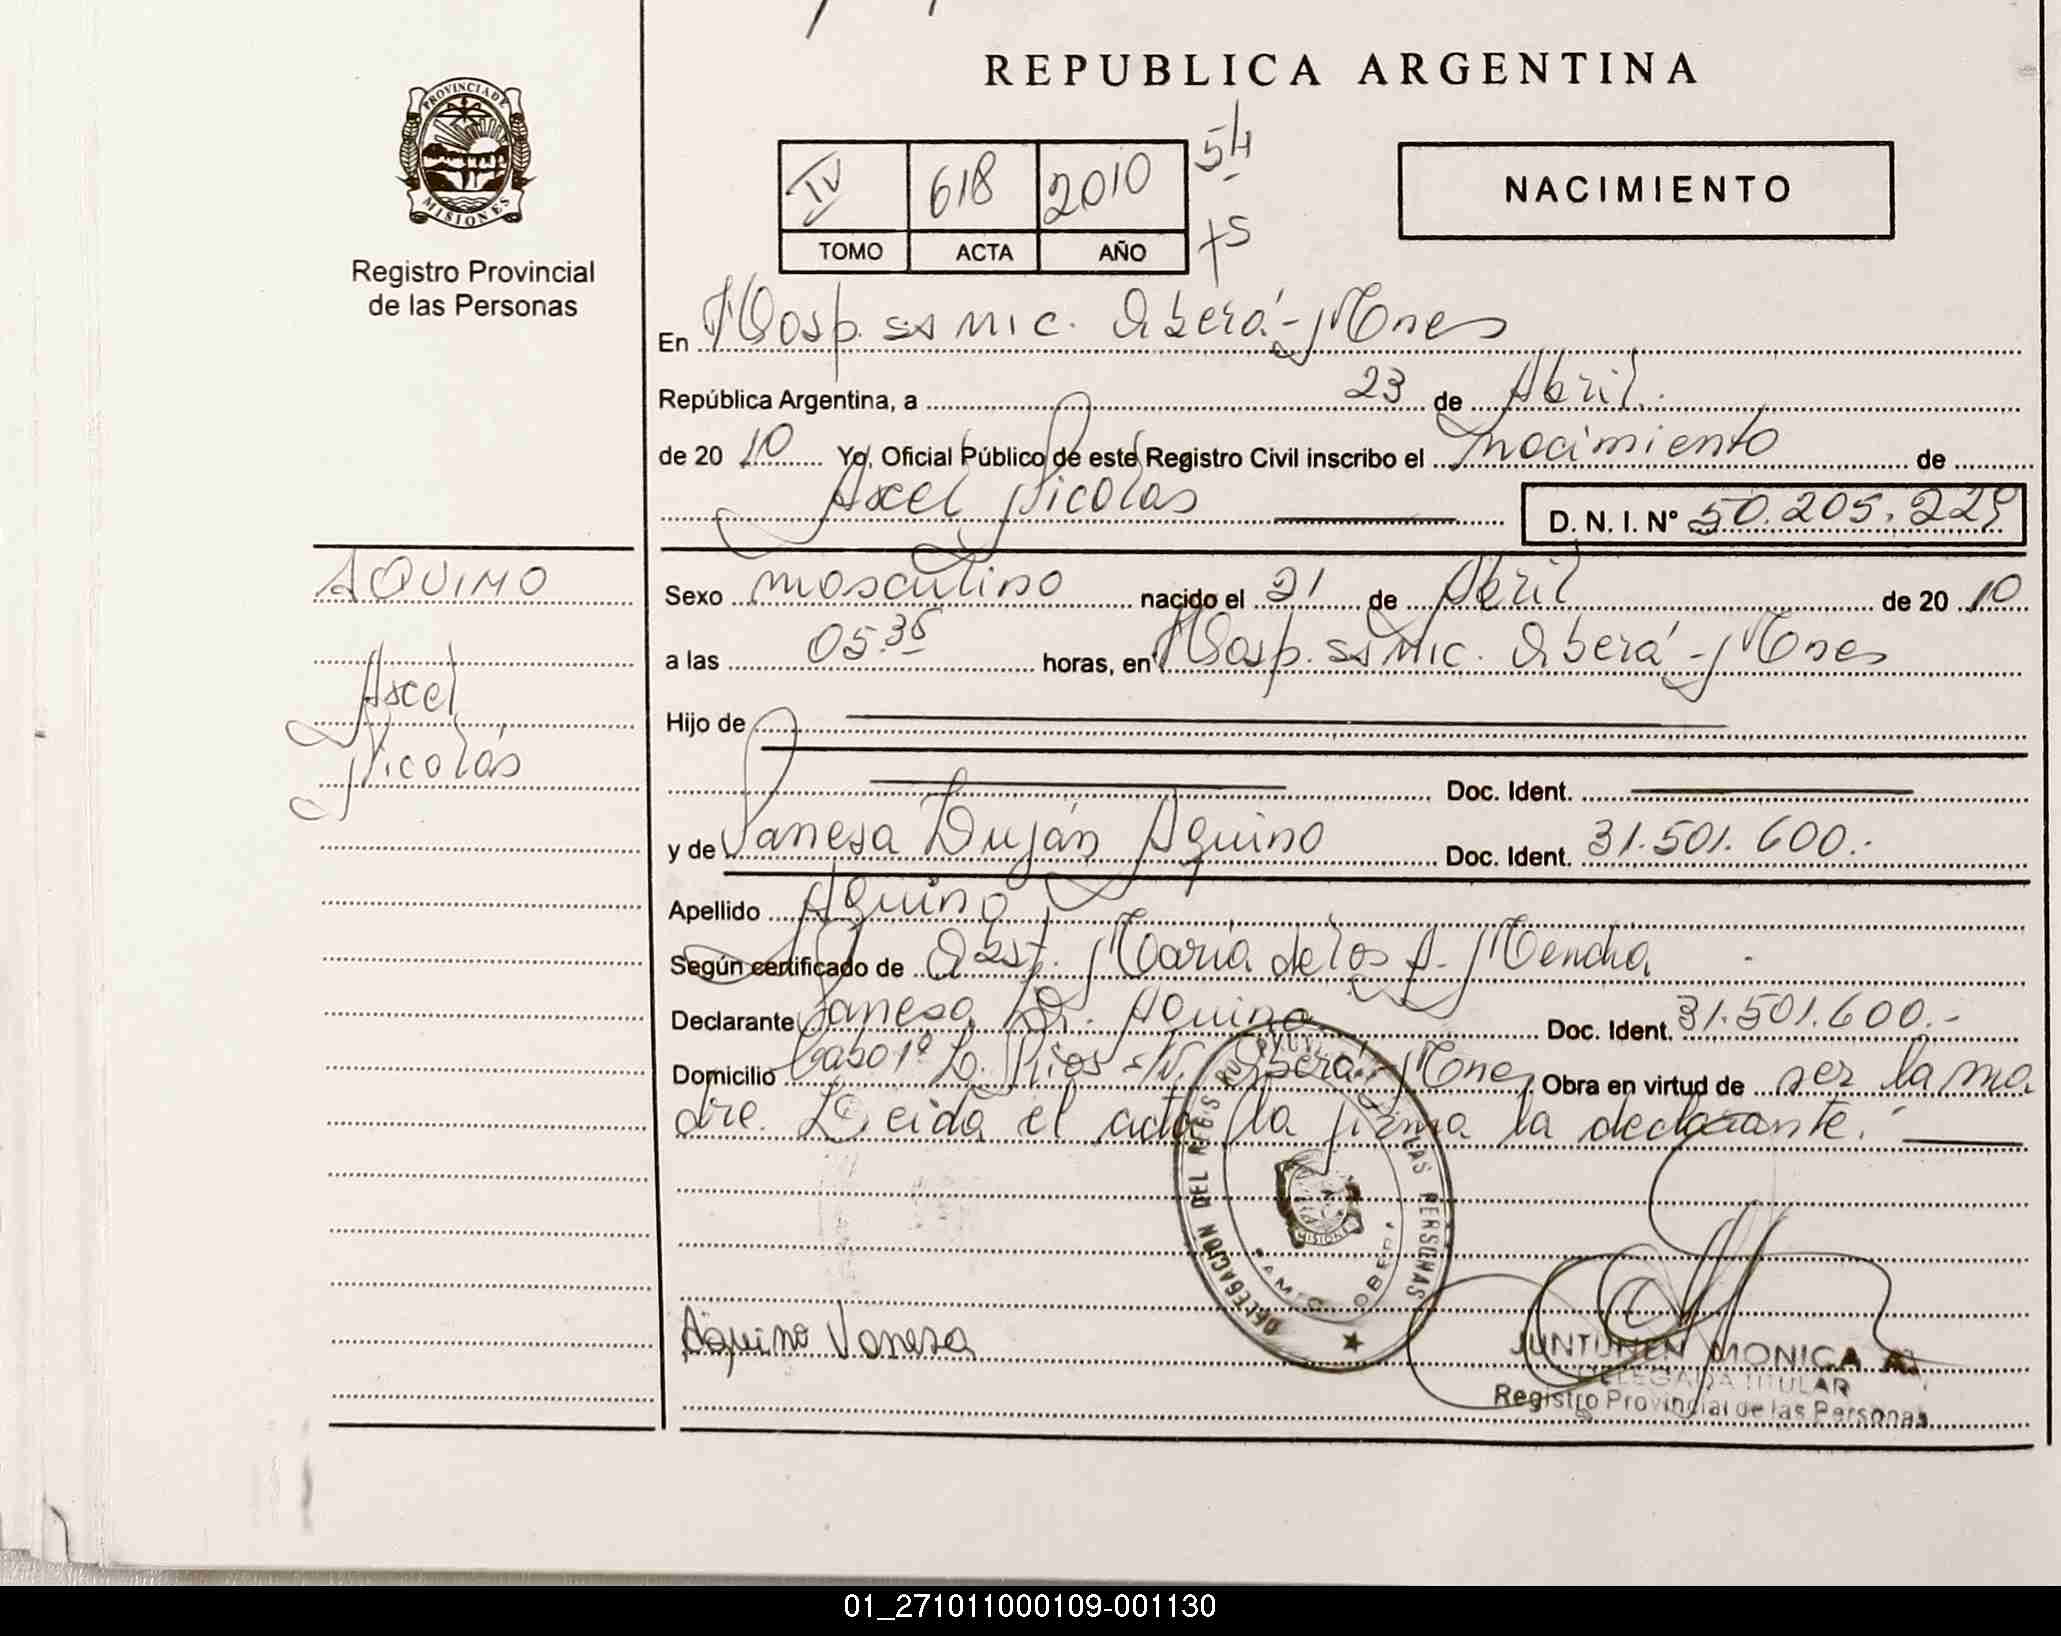 REPUBLICA ARGENTINA
PROVINCIA DE MISIONES
Registro Provincial
de las Personas
IV 618 2010 54
TOMO ACTA AÑO
NACIMIENTO
En Hosp. ss mic. Oberá - Mnes
República Argentina, a 23 de Abril.
de 20 10 Yo, Oficial Público de este Registro Civil inscribo el nacimiento de
Axel Nicolás D. N. I. Nº 50.205.229
AQUINO
Axel
Nicolás
Sexo masculino nacido el 21 de Abril de 20 10
a las 05.35 horas, en Hosp. ss Mic. Oberá - Mnes
Hijo de
Doc. Ident.
y de Vanesa Luján Aquino Doc. Ident. 31.501.600.-
Apellido Aquino
Según certificado de Obst. María de los A. Mencha
Declarante Vanesa L. Aquino Doc. Ident. 31.501.600.-
Domicilio Cabo 1º L. Ríos s/N. Oberá - Mnes Obra en virtud de ser la ma
dre. Leida el acta la firma la declarante.
DELEGACION DEL REGIS LAS PERSONAS
MISIONES
OBERA
Aquino Vanesa
JUNTUNEN MONICA A.
DELEGADA TITULAR
Registro Provincial de las Personas
01_271011000109-001130